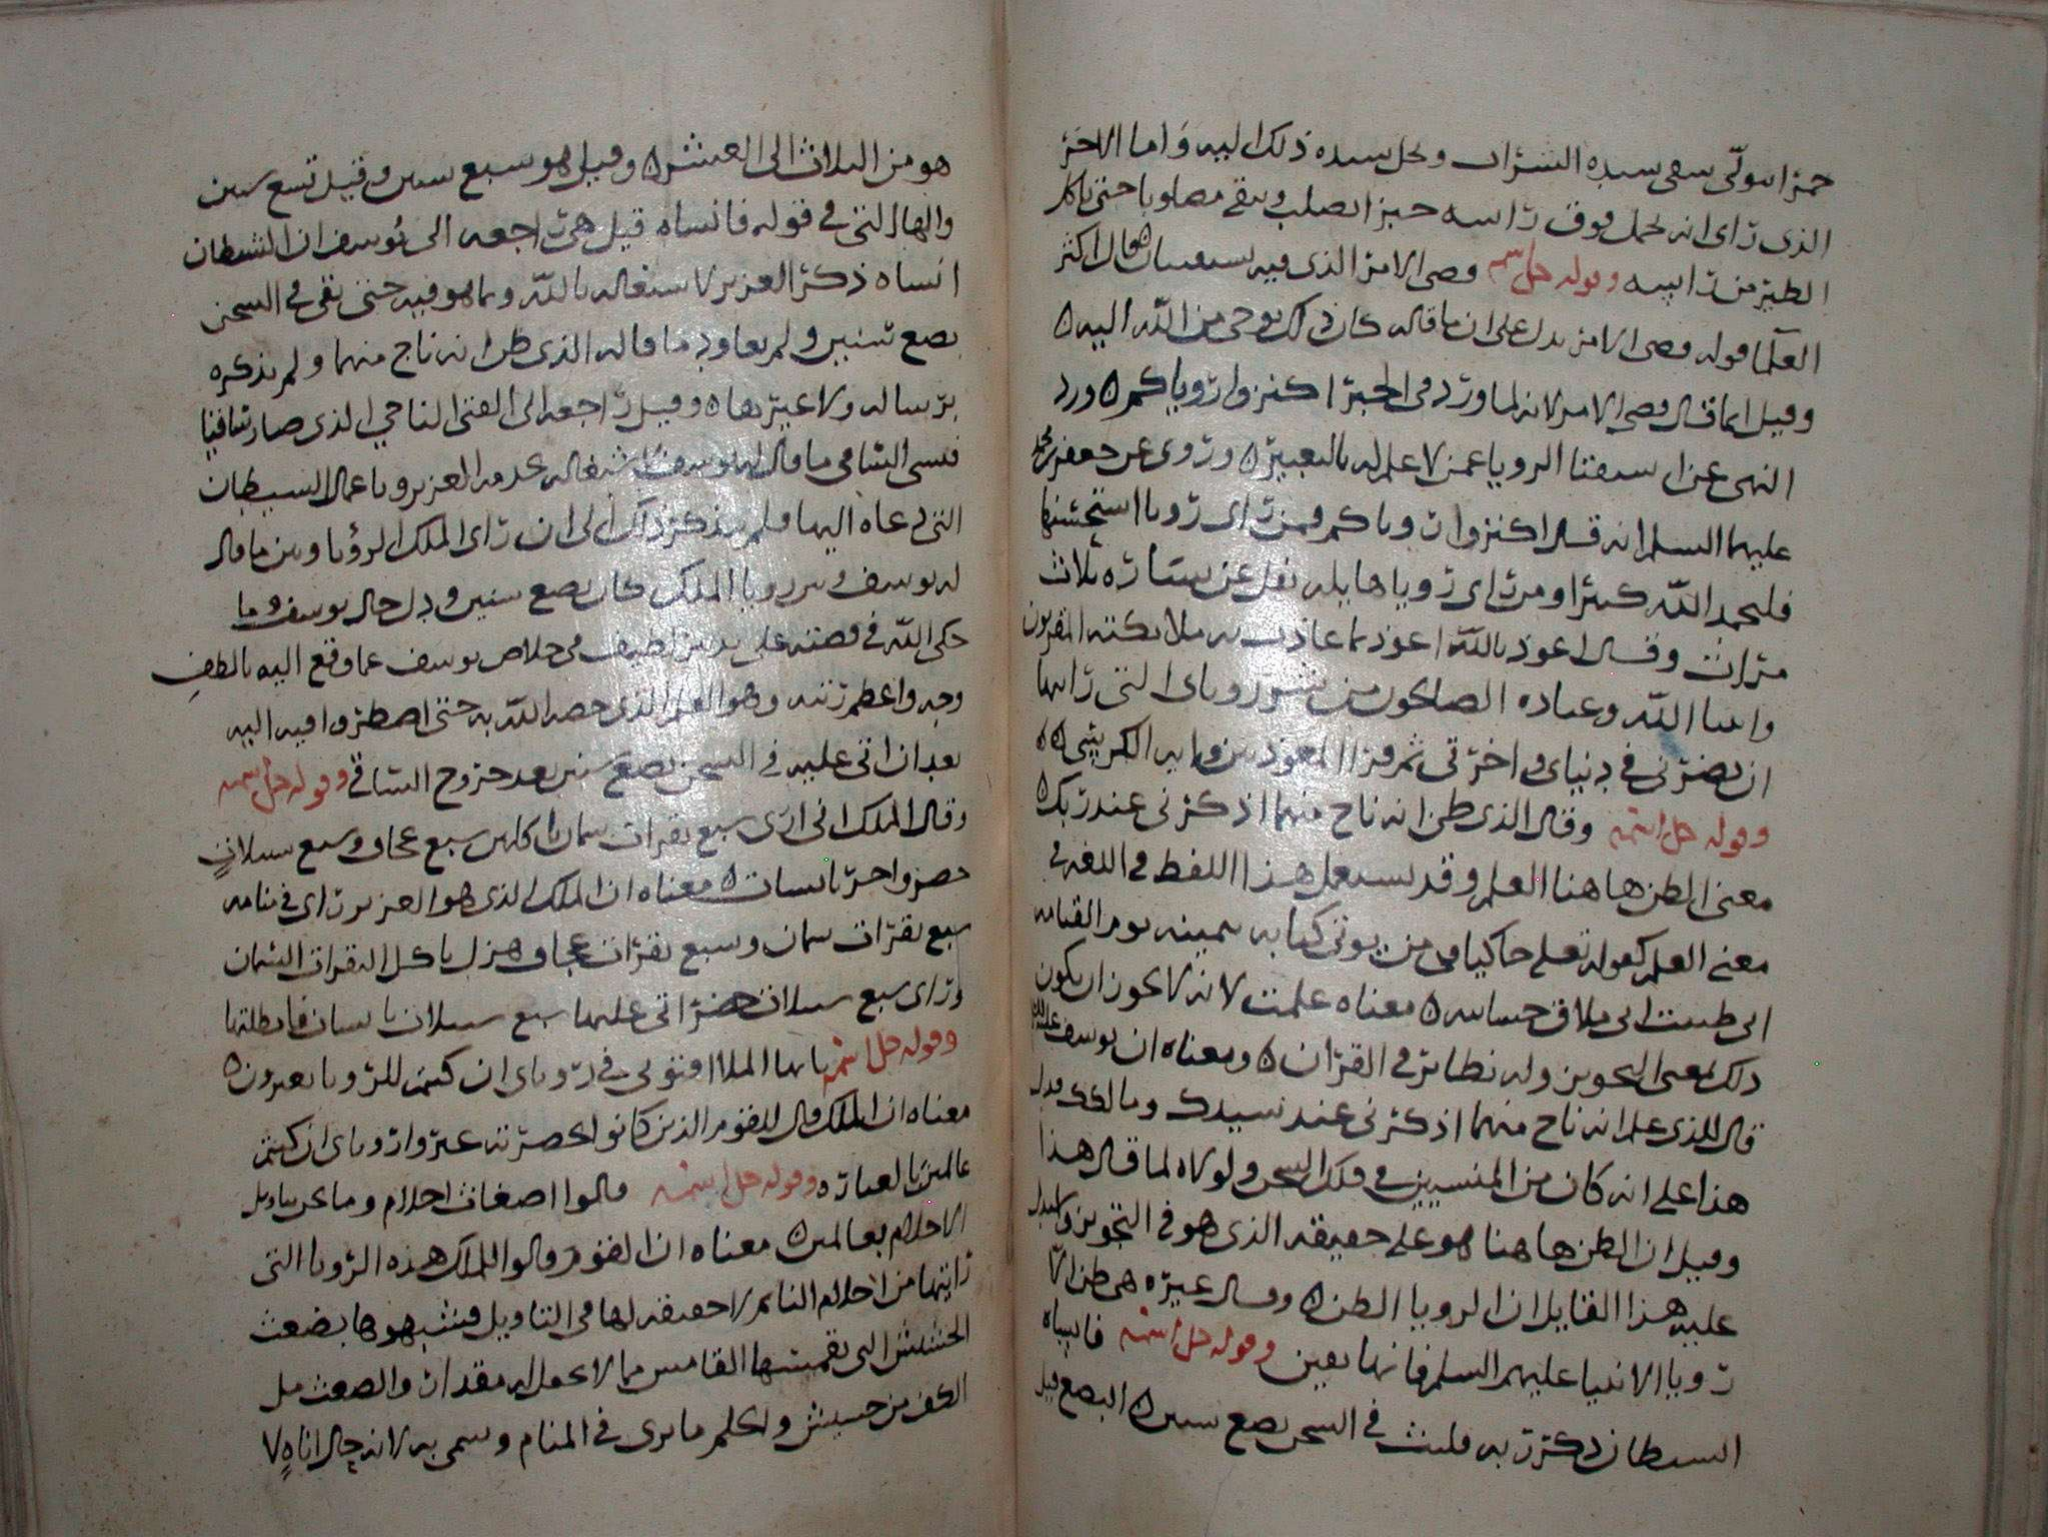 خمرا يتولى سقي سيده الشراب ومحل سيده ذلك اليه واما الاخر
الذي راى انه يحمل فوق راسه خبزا يصلب ويبقى مصلوبا حتى ياكل
الطير من راسه وقوله جل اسمه قضي الامر الذي فيه تستفتيان قال اكثر
العلما قوله قضي الامر يدل على ان ما قاله كان ذلك بوحي من الله اليه ه
وقيل انما قال قضي الامر لانه لما ورد في الخبر اكتموا روياكم ه ورد
النهي عن استفتا الرويا عمن لا علم له بالتعبير ه وروي عن جعفر بن محمد
عليهما السلم انه قال اكتموا روياكم فمن راى رويا استحسنها
فليحمد الله كثيرا ومن راى رويا هايله تفل عن يساره ثلاث
مرات وقال اعوذ بالله اعوذ بما عاذت به ملائكته المقربون
وانبيا الله وعباده الصالحون من شر روياى التي رايتها
ان يضرني في دنياي واخرتي ثم قرا المعوذتين واية الكرسي ه ه
وقوله جل اسمه وقال الذي ظن انه ناج منهما اذكرني عند ربك ه
معنى الظن هاهنا العلم وقد يستعمل هذا اللفظ في اللغه في
معنى العلم كقوله تعلى حاكيا في من يوتى كتابه بيمينه يوم القيامه
اني ظننت اني ملاق حسابيه ه معناه علمت لانه لا يجوز ان يكون
ذلك بمعنى التجويز وله نظائر في القران ه ومعناه ان يوسف عليه السلم
قال للذي علم انه ناج منهما اذكرني عند سيدك ومالكك فدل
هذا على انه كان من المنسيين في ذلك السجن ولولاه لما قال هذا
وقيل ان الظن هاهنا هو على حقيقه الذي هو في التجويز واستدل
عليه هذا القايل ان الرويا الظن ه وقال غيره هي ظن الا
رويا الانبيا عليهم السلم فانها يقين وقوله جل اسمه فانساه
الشيطان ذكر ربه فلبث في السجن بضع سنين ه البضع قيل
هو من الثلاث الى العشر ه وقيل هو سبع سنين وقيل تسع سنين
والها التي في قوله فانساه قيل هي راجعه الى يوسف ان الشيطان
انساه ذكر العزيز لاشتغاله بالله وما هو فيه حتى بقي في السجن
بضع سنين ولم يعاود ما قاله الذي ظن انه ناج منهما ولم يذكره
برساله ولا غيرها ه وقيل راجعه الى الفتى الناجي الذي صار ساقيا
فنسي الساقي ما قال له يوسف لاشتغاله بخدمه العزيز وباعمال الشيطان
التي دعاه اليها فلم يذكر ذلك الى ان راى الملك الرؤيا وبين ما قاله
له يوسف وبين رويا الملك كان بضع سنين ودل حال يوسف وما
حكى الله في قصته على تدبير لطيف في خلاص يوسف عما وقع اليه بالطف
وجه واعظم رتبه وهو العلم الذي خصه الله به حتى اضطروا فيه اليه
بعد ان اتى عليه في السجن بضع سنين بعد خروج الساقي وقوله جل اسمه
وقال الملك اني ارى سبع بقرات سمان ياكلهن سبع عجاف وسبع سنبلات
خضر واخر يابسات ه معناه ان الملك الذي هو العزيز راى في منامه
سبع بقرات سمان وسبع بقرات عجاف هزل ياكل البقرات السمان
وراى سبع سنبلات خضر اتى عليها سبع سنبلات يابسات فابطلتها
وقوله جل اسمه يايها الملا افتوني في روياى ان كنتم للرويا تعبرون ه
معناه ان الملك قال للقوم الذين كانوا بحضرته عبروا روياى ان كنتم
عالمين بالعباره ه وقوله جل اسمه قالوا اضغاث احلام وما نحن بتاويل
الاحلام بعالمين ه معناه ان القوم قالوا للملك هذه الرويا التي
رايتها من احلام النائم لا حقيقه لها في التاويل فشبهوها بضغث
الحشيش التي القابس مما لا يحمل له مقدار والضغث مل
الكف من حشيش والحلم ما يرى في المنام وسمي به لانه حال اناه ٧